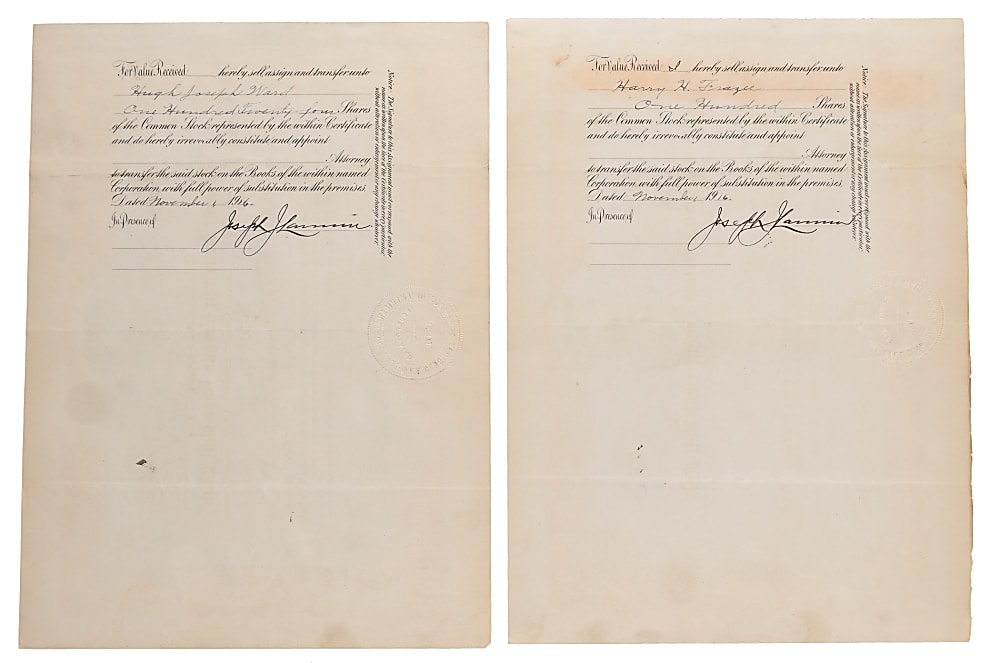 For Value Received hereby sell, assign and transfer unto
Hugh Joseph Ward
One Hundred Twenty-four Shares
of the Common Stock represented by the within Certificate
and do hereby irrevocably constitute and appoint
Attorney
to transfer the said stock on the Books of the within named
Corporation, with full power of substitution in the premises.
Dated November 1, 1916.
In Presence of
Joseph J Lannin
Notice: The Signature to this Assignment must correspond with the
name as written upon the face of the Certificate in every particular,
without alteration or enlargement or any change whatever.
For Value Received I hereby sell, assign and transfer unto
Harry H. Frazee
One Hundred Shares
of the Common Stock represented by the within Certificate
and do hereby irrevocably constitute and appoint
Attorney
to transfer the said stock on the Books of the within named
Corporation, with full power of substitution in the premises.
Dated November 1, 1916.
In Presence of
Joseph J Lannin
Notice: The Signature to this Assignment must correspond with the
name as written upon the face of the Certificate in every particular,
without alteration or enlargement or any change whatever.